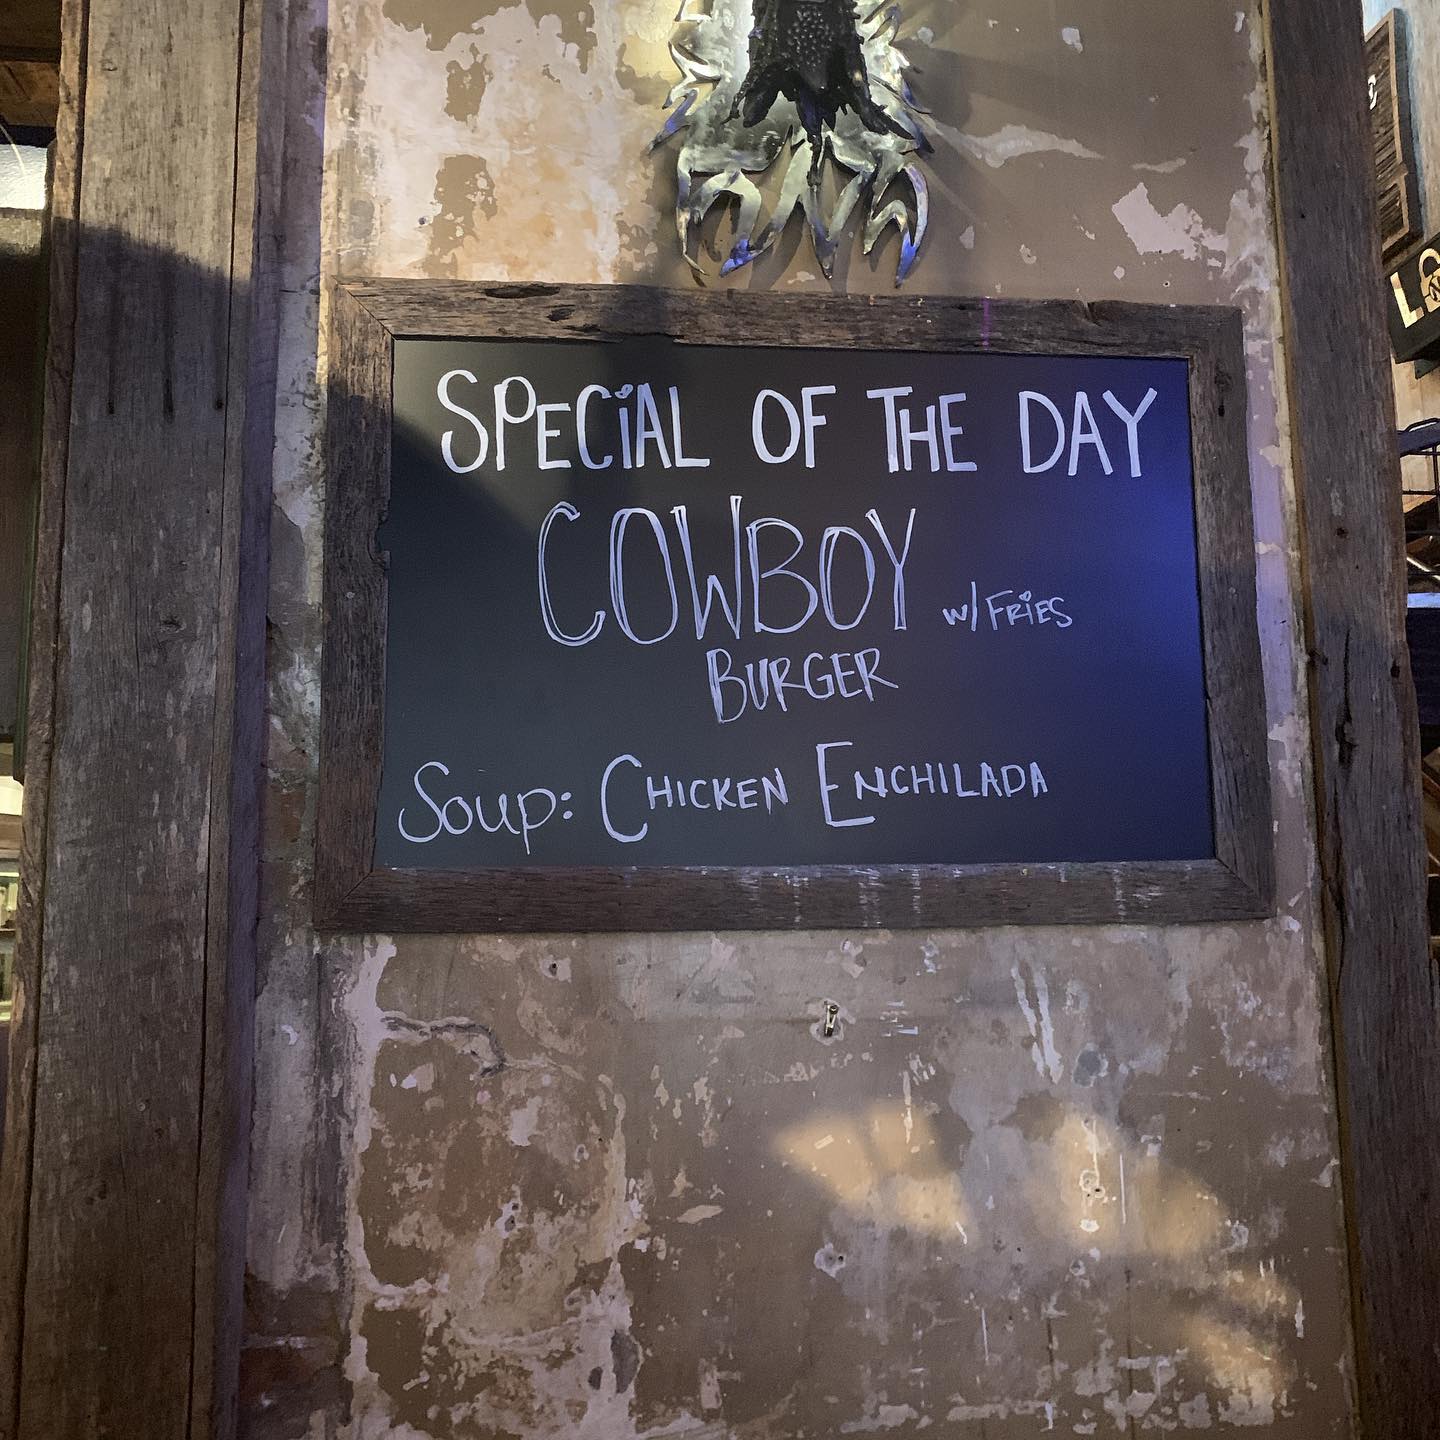 SPECiAL OF THE DAY
COWBOY w/ FRiES
BURGER
Soup: CHICKEN ENCHILADA